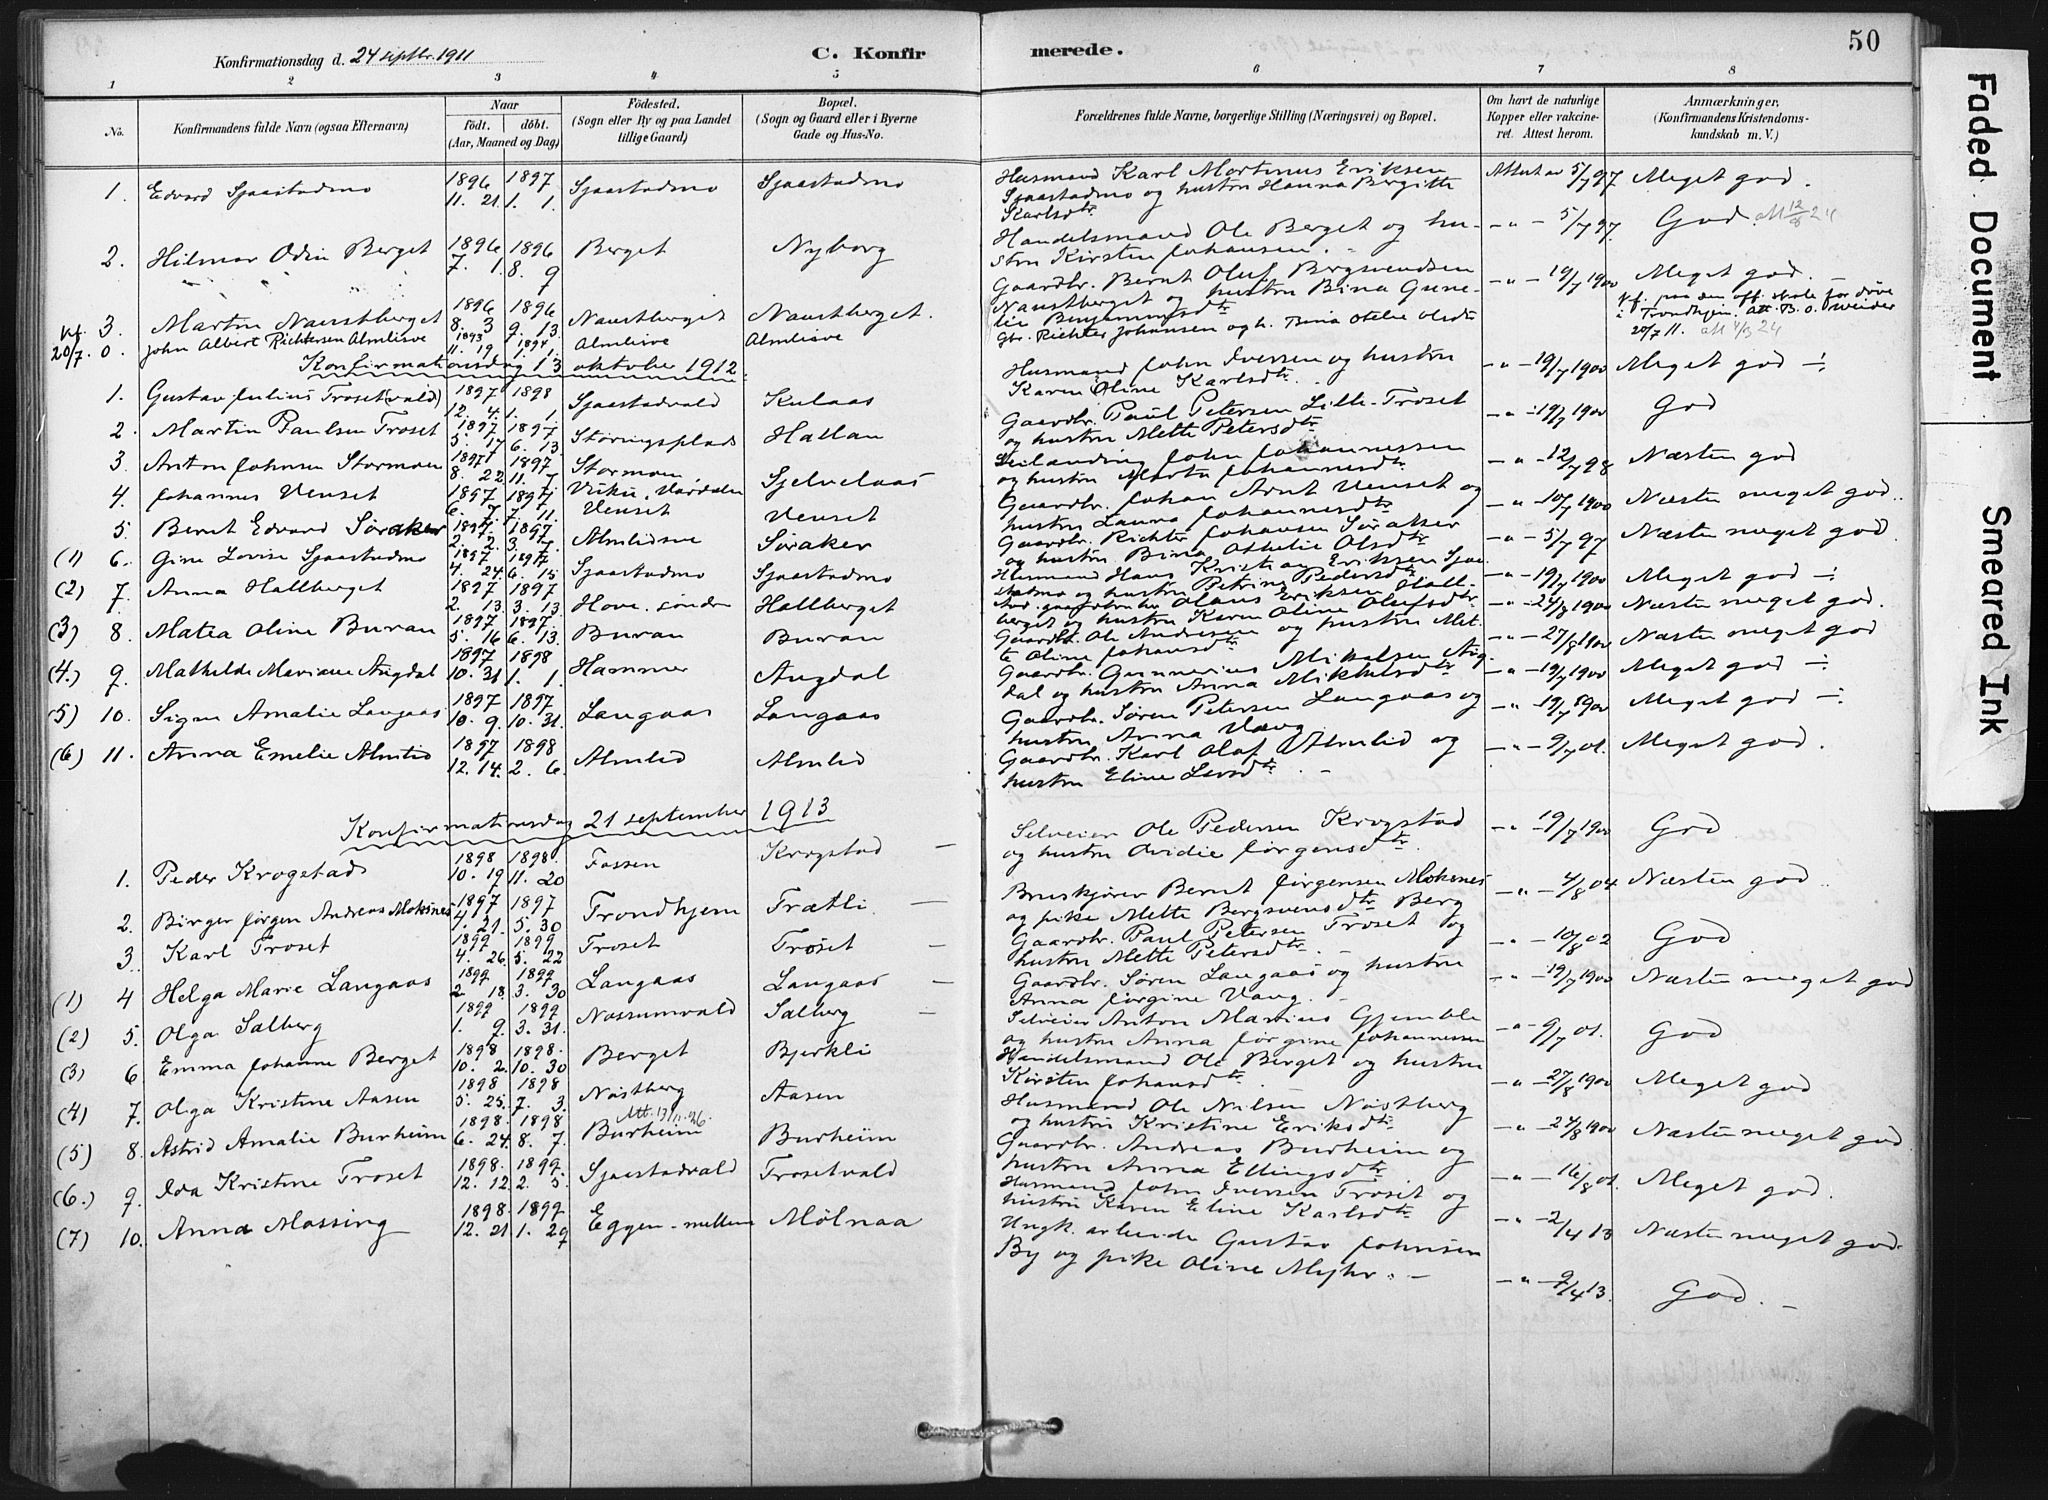 Konfirmationsdag d. 24 septbr. 1911
C. Konfirmerede.
50
1 2 3 4 5 6 7 8
No. Konfirmandens fulde Navn (ogsaa Efternavn) Naar født. døbt. (Aar, Maaned og Dag) Fødested. (Sogn eller By og paa Landet tillige Gaard) Bopæl. (Sogn og Gaard eller i Byerne Gade og Hus-No. Forældrenes fulde Navne, borgerlige Stilling (Næringsvei) og Bopæl. Om havt de naturlige Kopper eller vakcineret. Attest herom. Anmærkninger. (Konfirmandens Kristendomskundskab m. V.)
1. Edvard Sjaastadmo 1896 11. 21. 1897 1. 1. Sjaastadmo Sjaastadmo Husmand Karl Martinus Eriksen Sjaastadmo og hustru Hanna Bergitte Karlsdtr. Attest av 5/7 97 Meget god.
2. Hilmar Odin Berget 1896 7. 1. 1896 8. 9 Berget Nyborg Handelsmand Ole Berget og hustru Kirsten Johansen. -"- 5/7 97. God. att 12/8 24
3. Martin Naustberget 1896 8. 3 1896 9. 13 Naustberget Naustberget. Gaardbr. Bernt Oluf Bergsvendsen Naustberget og hustru Bina Gunelie Benjaminsdtr -"- 19/7 1900 Meget god.
kf. 20/7. 0. John Albert Richtersen Almlisve 1893 11. 19 1894 1. 1. Almlisve Almlisve Gbr. Richter Johansen og h. Bina Otelie Olsdtr kf. paa den off. skole for døve i Trondhjem. 20/7 11. att 4/3 24
Konfirmationsdag 13 oktober 1912.
1. Gustav Julius Trøset(vald) 1897 12. 4. 1898 1. 1. Sjaastadvald Kulaas Husmand John Iversen og hustru Karen Oline Karlsdtr. -"- 19/7 1900 Meget god -:
2. Martin Paulsen Trøset 1897 5. 17 1897 6. 13. Støringsplads Hallan Gaardbr. Paul Petersen Lille-Trøset og hustru Mette Petersdtr -"- 19/7 1900 God
3. Anton Johnsen Stormoen 1897 8. 22 1897 11. 7 Stormoen Sjelvelaas John Johannessen og hustru Marta Johannesdtr -"- 12/7 98 Næsten god
4. Johannes Venset 1897 6. 7 1897 7. 11. Vuku, Værdalen Venset Venset Gaardbr. Johan Arnt Venset og hustru Laura Johannesdtr -"- 10/7 1900 Næsten meget god.
5. Bernt Edvard Søraker 1897. 2. 2. 1897. 3. 7. Almlidsve Søraker Gaardbr. Richter Johansen Søraker og hustru Bina Othelie Olsdtr -"- 5/7 97 Næsten meget god.
(1) 6. Gine Lovise Sjaastadmo 1897 4. 24. 1897 6. 15 Sjaastadmo Sjaastadmo Husmand Hans Kristian Eriksen Sjaastadmo og hustru Petrine Pedersdtr -"- 19/7 1900 Meget god -:
(2) 7. Anna Hallberget 1897 2. 13. 1897 3. 13 Hove, søndre Hallberget Olaus Eriksen Hallberget og hustru Karen Oline Olufsdtr. -"- 27/8 1900 Næsten meget god.
(3) 8. Matea Oline Buran 1897 5. 16 1897. 6. 13. Buran Buran Gaardbr. Ole Andresen og hustru Mette Oline Johansdtr -"- 27/8 1900 Næsten meget god
(4.) 9. Mathilde Mariane Augdal 1897 10. 31 1898 1. 1. Hammer Augdal Gaardbr. Gunnerius Mikalsen Augdal og hustru Anna Mikkelsdtr -"- 19/7 1900 Meget god -:
(5) 10. Signe Amalie Langaas 1897 10. 9. 1897 10. 31. Langaas Langaas Gaardbr. Søren Petersen Langaas og hustru Anna Vang -"- 19/7 1900 Meget god -:
(6) 11. Anna Emelie Almlid 1897 12. 14. 1898 2. 6. Almlid Almlid Gaardbr. Karl Olaf Almlid og hustru Eline Larsdtr. -"- 9/7 01. Meget god.
Konfirmationsdag 21 september 1913
1. Peder Krogstad 1898 10. 19 1898. 11. 20 Fossen Krogstad Selveier Ole Pedersen Krogstad og hustru Ovidie Jørgensdtr. -"- 19/7 1900 God
2. Birger Jørgen Andreas Moksnes 1897 4. 21. 1897 5. 30 Trondhjem Trætli Bruskjører Bernt Jørgensen Moksnes og pike Mette Bergsvensdtr Berg -"- 4/8 04 Næsten god.
3. Karl Trøset 1899 4. 26. 1899 5. 22 Trøset Trøset Gaardbr. Paul Petersen Trøset og hustru Mette Petersdtr. -"- 10/8 02 God
(1) 4 Helga Marie Langaas 1899 2. 18. 1899 3. 30 Langaas Langaas Gaardbr. Søren Langaas og hustru Anna Jørgine Vang. -"- 19/7 1900 Næsten meget god
(2) 5. Olga Salberg 1899 1. 9. 1899 3. 31. Nossumvald Salberg Selveier Anton Marius Gjemble og hustru Anna Jørgine Johannessen -"- 9/7 01. God
(3) 6 Emma Johanne Berget 1898 10. 2. 1898. 10. 30 Berget Bjerkli Handelsmand Ole Berget og hustru Kirsten Johansdtr. -"- 27/8 1900 Meget god
(4) 7. Olga Kristine Aasen 1898 5. 25. 1898 7. 3. Nøstberg Aasen Husmand Ole Nilsen Nøstberg og hustru Kristine Eriksdtr -"- 27/8 1900 Næsten meget god
(5) 8. Astrid Amalie Burheim 1898. 6. 24. 1898 8. 7. Att. 17/11.26. Burheim Burheim Gaardbr. Andreas Burheim og hustru Anna Ellingsdtr -"- 16/8 01. Meget god.
(6.) 9. Ida Kristine Trøset 1898. 12. 12. 1899 2. 5. Sjaastadvald Trøsetvald Husmand John Iversen Trøset og hustru Karen Eline Karlsdtr -"- 2/4 13 Næsten meget god.
(7) 10. Anna Mossing 1898. 12. 21 1899 1. 29 Eggen - mellem Mølnaa Ungk. arbeide Gustav Johnsen By og pike Oline Myhr. -"- 9/4 13. God.
Faded Document
Smeared Ink